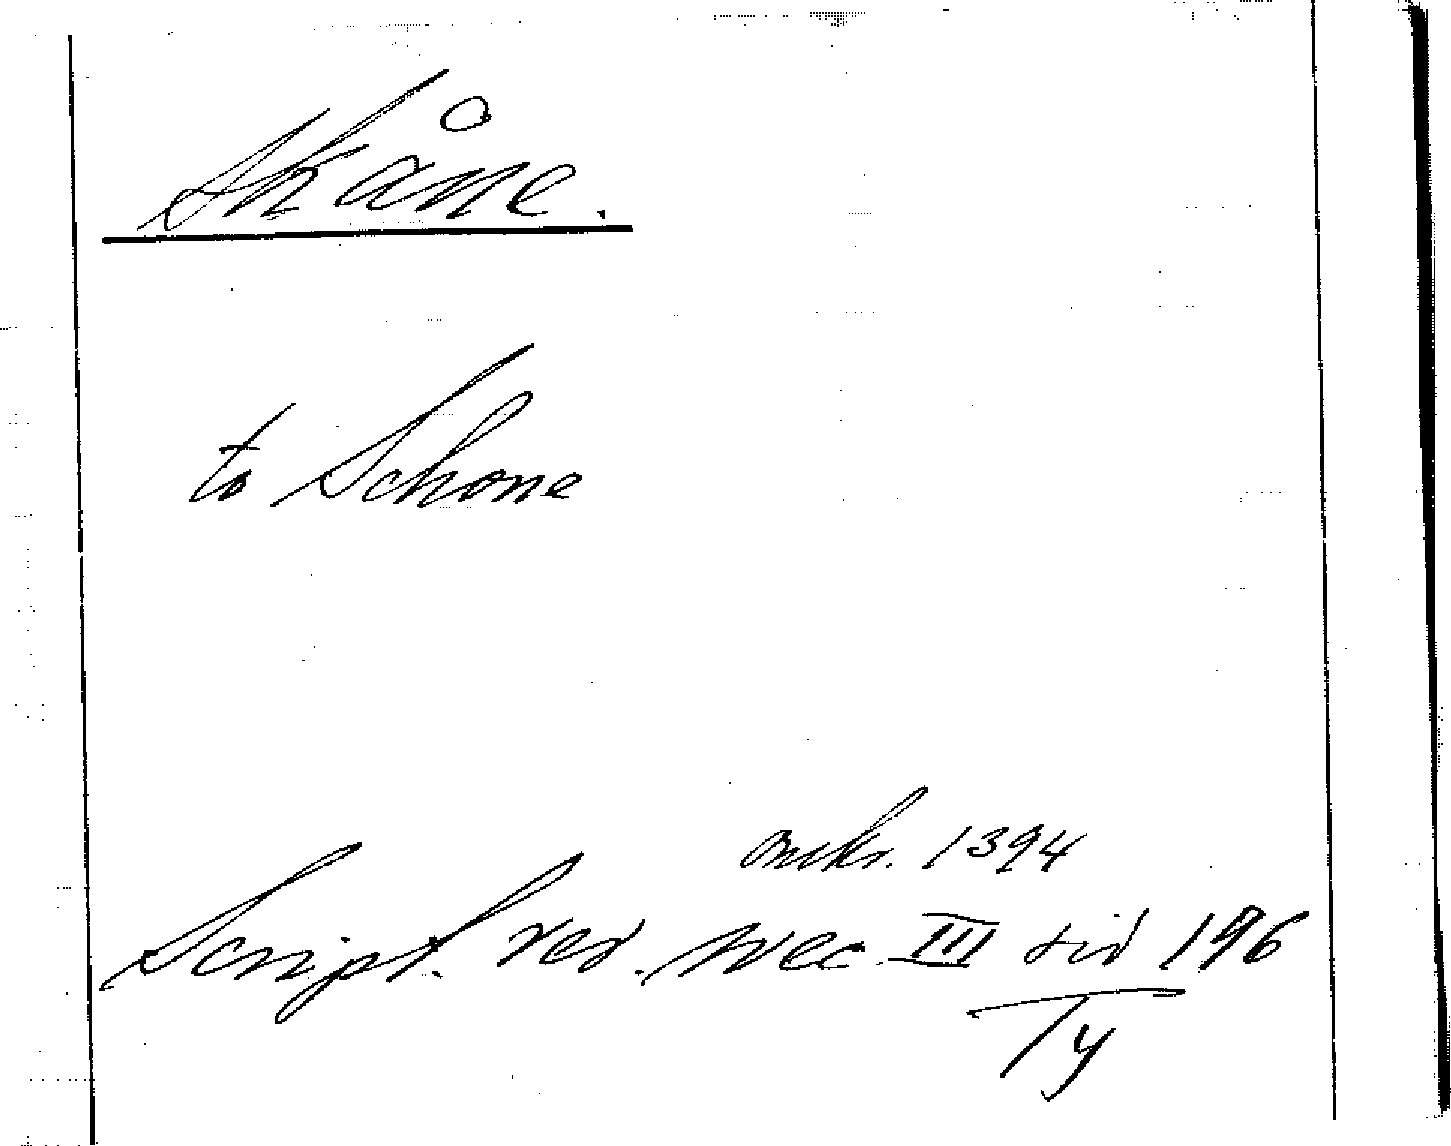 Skåne.
to Schone
omkr. 1394
Script. rer. svec. III sid 196
Ty